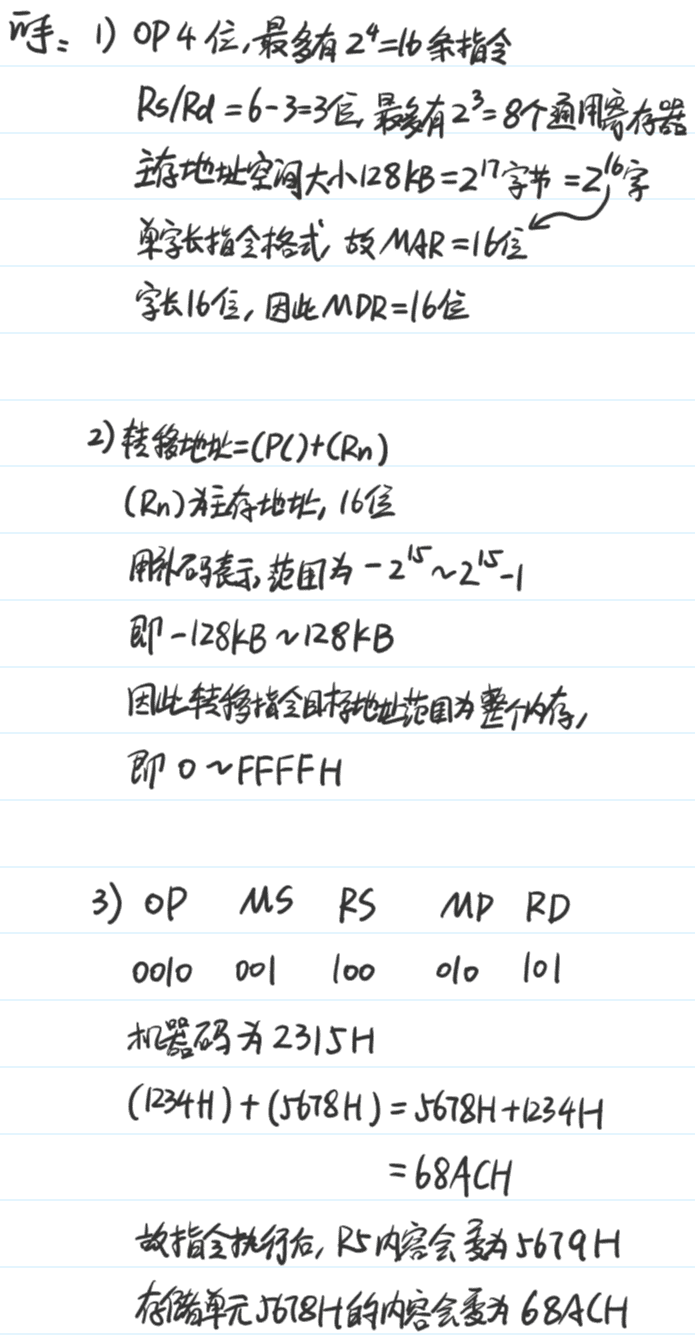 1) OP 4位,最多有2⁴=16条指令
Rs/Rd=6-3=3位,最多有2³=8个通用寄存器
主存地址空间大小128KB=2¹⁷字节=2¹⁶字
单字长指令格式,故MAR=16位
字长16位,因此MDR=16位
2)转移地址=(PC)+(Rn)
(Rn)为主存地址,16位
用补码表示,范围为-2¹⁵~2¹⁵-1
即-128KB~128KB
因此转移指令目标地址范围为整个内存,
即 0~FFFFH
3) OP MS RS MD RD
0010 001 100 010 101
机器码为2315H
(1234H)+(5678H)=5678H+1234H
=68ACH
故指令执行后,R5内容会变为5679H
存储单元5678H的内容会变为68ACH